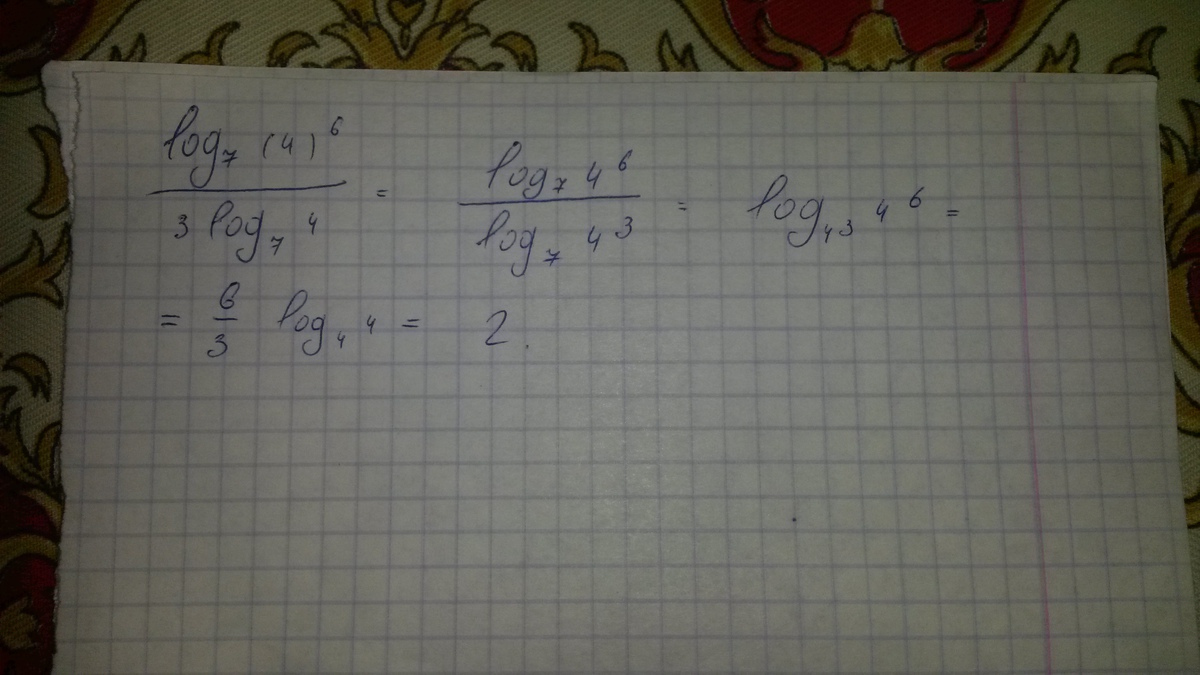 log₇ (4)⁶ / 3 log₇ 4 = log₇ 4⁶ / log₇ 4³ = log₄3 4⁶ =
= 6/3 log₄ 4 = 2.